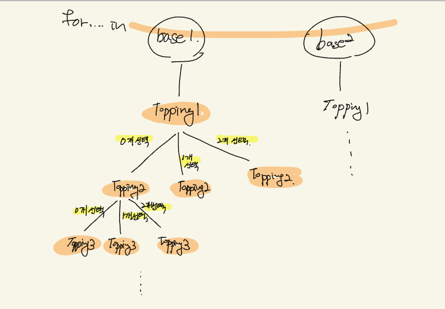 for.... in
base 1.
base 2
Topping 1
Topping 1
0개 선택
1개
선택
2개 선택.
Topping 2
Topping 2
Topping 2.
0개 선택
1개 선택
2개 선택
Topping 3
Topping 3
Topping 3